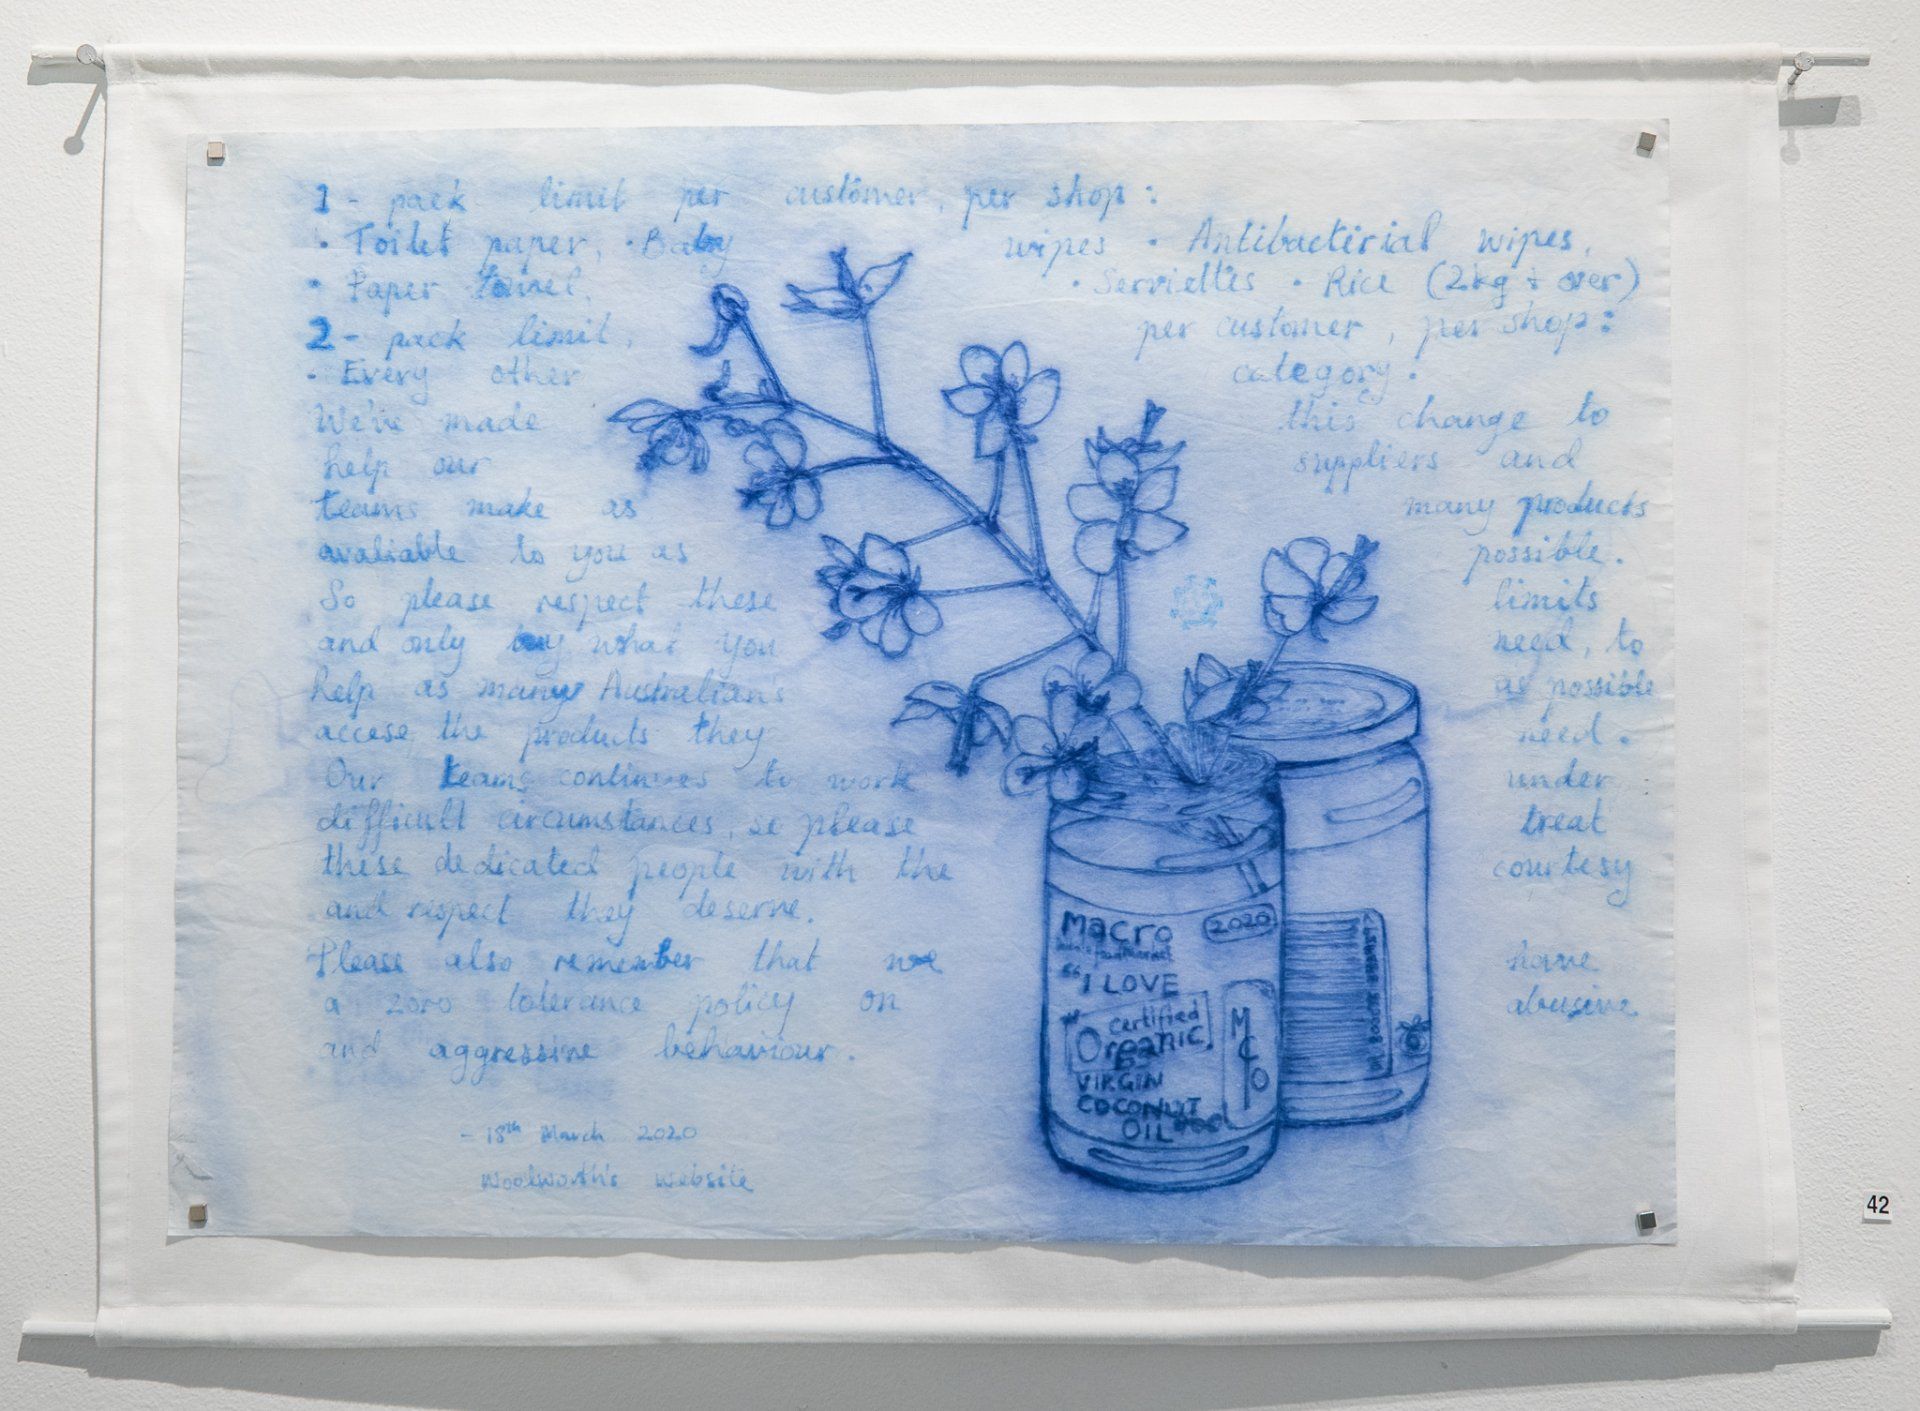 1 - pack limit per customer, per shop:
• Toilet paper, • Baby wipes • Antibacterial wipes,
• Paper towel, • Serviettes • Rice (2kg + over)
2 - pack limit, per customer, per shop:
• Every other category.
We've made this change to
help our suppliers and
teams make as many products
avaliable to you as possible.
So please respect these limits
and only buy what you need, to
help as many Australian's as possible
access the products they need.
Our teams continues to work under
difficult circumstances, so please treat
these dedicated people with the courtesy
and respect they deserve.
Please also remember that we have
a zero tolerance policy on abusive
and aggressive behaviour.
- 18th March 2020
Woolworth's website
macro
2020
"I LOVE
certified
Organic
VIRGIN
COCONUT
OIL
42